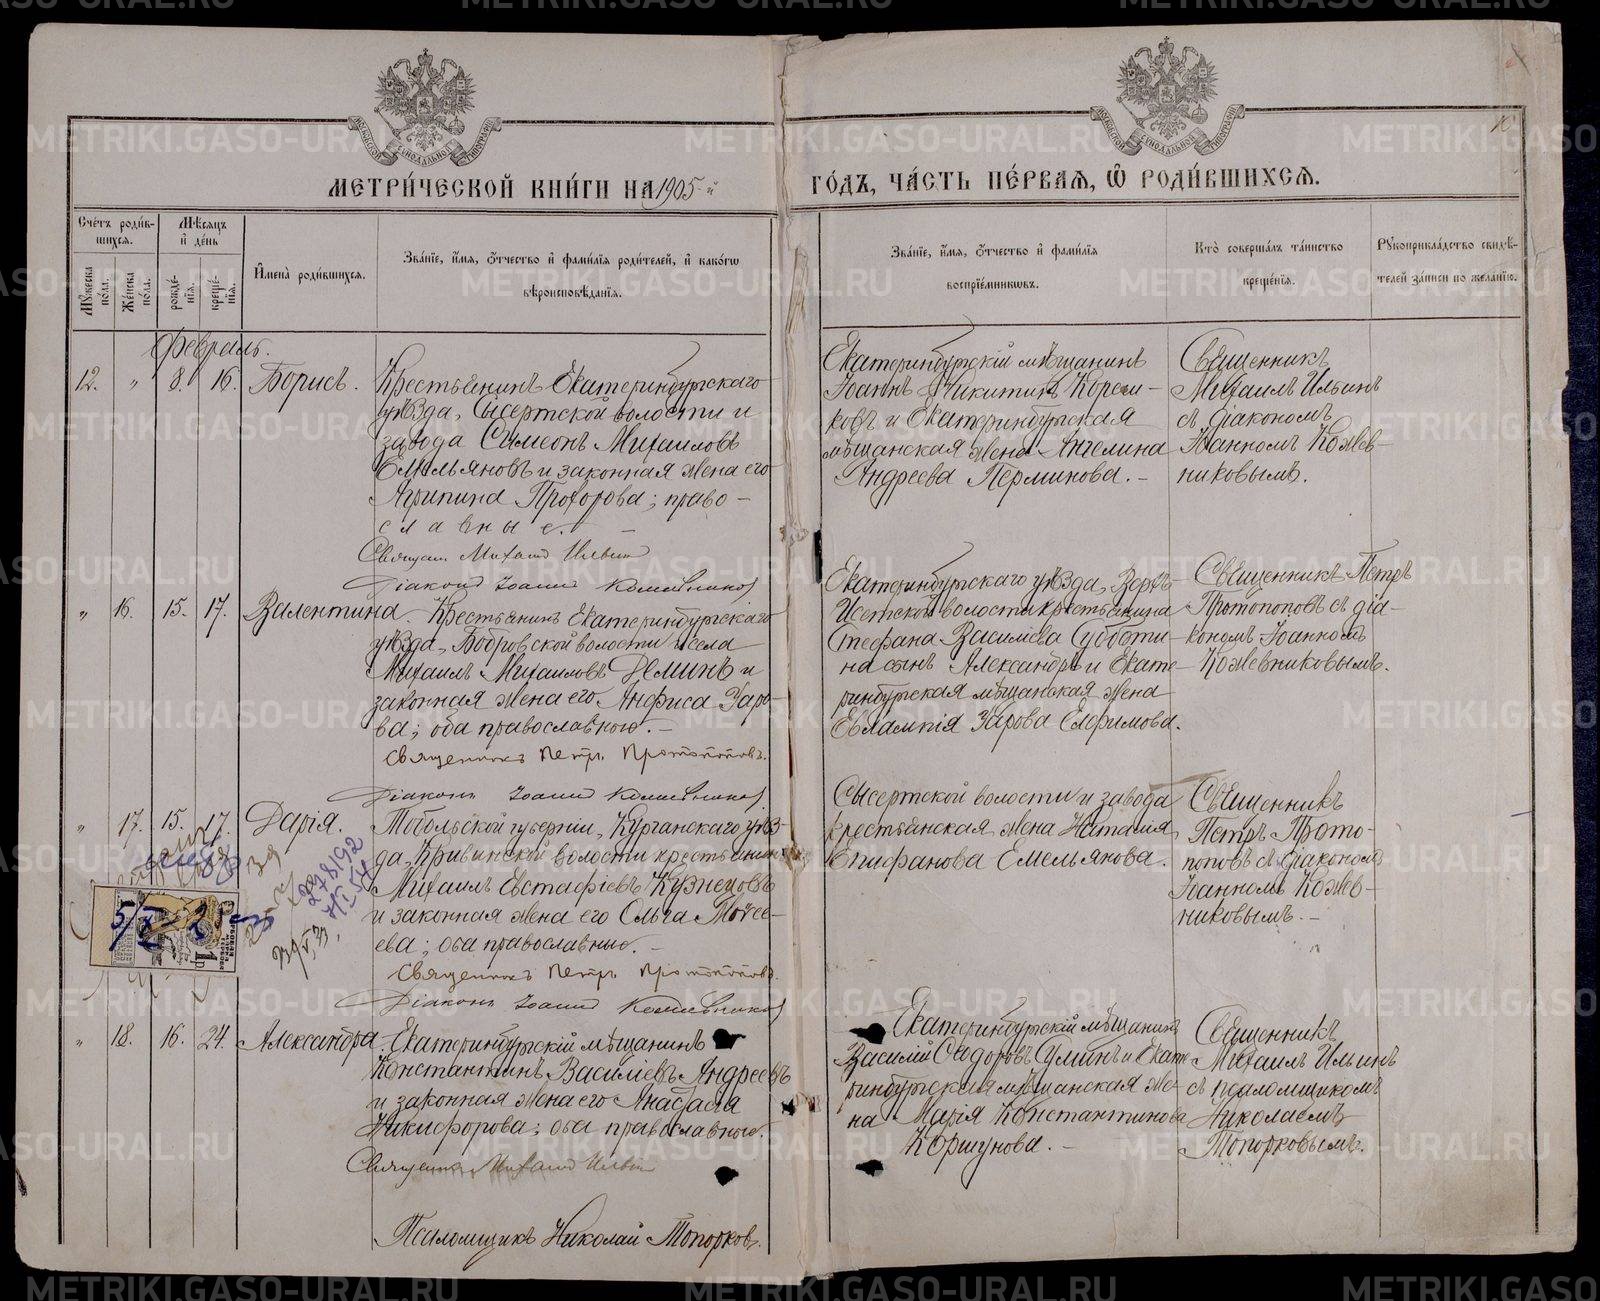 МЕТРИ́ЧЕСКОЙ КНИ́ГИ НА 1905-й
ГО́ДЪ, ЧА́СТЬ ПЕ́РВАѦ, Ѽ РОДИ́ВШИХСѦ.
Сче́тъ роди́вшихсѧ.
Мѣ́сѧцъ и҆ де́нь
Мꙋ́жеска по́ла.
Же́нска по́ла.
рожде́нїѧ.
креще́нїѧ.
И҆мена̀ роди́вшихсѧ.
Зва́нїе, и҆́мѧ, ѻ҆́тчество и҆ фами́лїѧ роди́телей, и҆ како́гѡ
вѣроисповѣ́данїѧ.
Зва́нїе, и҆́мѧ, ѻ҆́тчество и҆ фами́лїѧ
воспрїе́мникѡвъ.
Кто̀ соверша́лъ та́инство
креще́нїѧ.
Рꙋкоприкла́дство свидѣ́-
телей за́писи по жела́нїю.
Февраль.
12. " 8. 16. Борисъ.
Крестьянинъ Екатеринбургскаго
уѣзда, Сысертской волости и
завода Симеонъ Михаиловъ
Емельяновъ и законная жена его
Агрипина Прохорова; право-
славные.
Священ. Михаил Ильин
Діаконъ Іоаннъ Кожевников
Екатеринбургскій мѣщанинъ
Іоаннъ Никитинъ
ковъ и Екатеринбургская
мѣщанская жена Ангелина
Андреева Перминова. -
Священникъ
Михаилъ Ильинъ
съ діакономъ
Іоанномъ Кожев-
никовымъ.
" 16. 15. 17. Валентина.
Крестьянинъ Екатеринбургскаго
уѣзда, Бобровской волости и села
Михаилъ Михаиловъ Деминъ и
законная жена его Анфиса Уаро-
ва; оба православною. -
Священникъ Петръ Протопоповъ.
Діаконъ Іоаннъ Кожевников
Екатеринбургскаго уѣзда, Верхъ-
Исетской волости крестьянина
Стефана Василіева Субботи-
на сынъ Александръ и Екате-
ринбургская мѣщанская жена
Евлампія Уарова Елфимова.
Священникъ Петръ
Протопоповъ съ діа-
кономъ Іоанномъ
Кожевниковымъ.
" 17. 15. 17. Дарія.
Тобольской губерніи, Курганскаго уѣз-
да, Кривинской волости крестьянинъ
Михаилъ Евстафіевъ Кузнецовъ
и законная жена его Ольга Моисе-
ева; оба православною. -
Священникъ Петръ Протопоповъ.
Діаконъ Іоаннъ Кожевников
Сысертской волости и завода
крестьянская жена Наталія
Епифанова Емельянова.
Священникъ
Петръ Прото-
поповъ съ діакономъ
Іоанномъ Кожев-
никовымъ. -
" 18. 16. 24. Александра.
Екатеринбургскій мѣщанинъ
Константинъ Василіевъ Андреевъ
и законная жена его Анастасія
Никифорова; оба православною.
Священникъ Михаил Ильин
Псаломщикъ Николай Топорков.
Екатеринбургскій мѣщанинъ
Василій Сидоровъ Сулинъ и Екате-
ринбургская мѣщанская же-
на Марія Константинова
Коршунова. -
Священникъ
Михаилъ Ильинъ
съ псаломщикомъ
Николаемъ
Топорковымъ.
METRIKI.GASO-URAL.RU